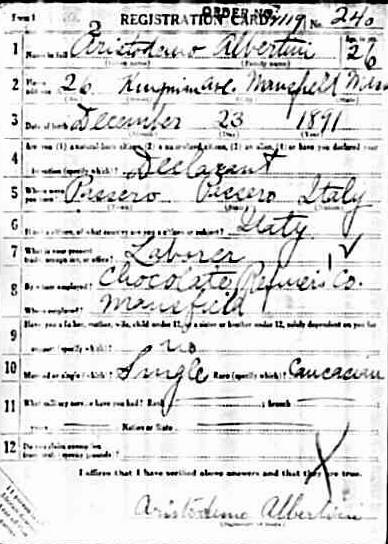 Form 1
REGISTRATION CARD
ORDER No
No. 240
1 Name in full Aristodemo Albertini
Age, in yrs. 26
2 Home address 26 Ave. Mansfield Mass
3 Date of birth December 23 1891
4 Are you (1) a natural-born citizen, (2) a naturalized citizen, (3) an alien, (4) or have you declared your
intention (specify which)? Declarant
5 Where were you born? Pessero Pessero Italy
6 If not a citizen, of what country are you a citizen or subject? Italy
7 What is your present trade, occupation, or office? Laborer
8 By whom employed? Chocolate Co.
Where employed? Mansfield
9 Have you a father, mother, wife, child under 12, or a sister or brother under 12, solely dependent on you for
support (specify which)? no
10 Married or single (which)? Single Race (specify which)? Caucasian
11 What military service have you had? Rank ; branch
years ; Nation or State
12 Do you claim exemption from draft (specify grounds)?
I affirm that I have verified above answers and that they are true.
Aristodemo Albertini